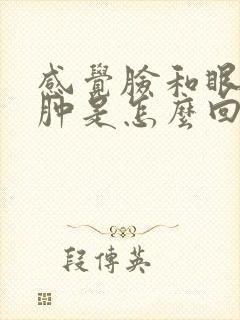 感覺臉和眼
肿是怎麼回
段傳英